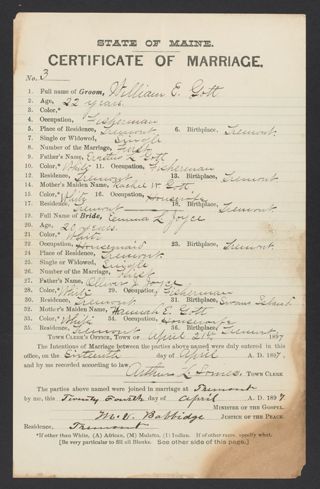 STATE OF MAINE.
CERTIFICATE OF MARRIAGE.
No. 3
1. Full name of Groom, William E. Gott
2. Age, 22 years
3. Color,* White
4. Occupation, Fisherman
5. Place of Residence, Tremont 6. Birthplace, Tremont
7. Single or Widowed, Single
8. Number of the Marriage, First
9. Father's Name, Gott
10. Color,* White 11. Occupation, Fisherman
12. Residence, Tremont 13. Birthplace, Tremont
14. Mother's Maiden Name, Rachel W. Gott
15. Color,* White 16. Occupation, Housewife
17. Residence, Tremont 18. Birthplace, Tremont
19. Full Name of Bride, Emma L. Joyce
20. Age, 20 years
21. Color,* White
22. Occupation, Housemaid 23. Birthplace, Tremont
24. Place of Residence, Tremont
25. Single or Widowed, Single
26. Number of the Marriage, First
27. Father's Name, Oliver Joyce
28. Color,* White 29. Occupation, Fisherman
30. Residence, Tremont 31. Birthplace, Swans Island
32. Mother's Maiden Name, Hannah E. Gott
33. Color,* White 34. Occupation, Housewife
35. Residence, Tremont 36. Birthplace, Tremont
TOWN CLERK'S OFFICE, TOWN OF April 21st 1897
The Intentions of Marriage between the parties above named were duly entered in this
office, on the day of April A. D. 1897
and by me recorded according to law, Arthur L. Somes, TOWN CLERK
The parties above named were joined in marriage at Tremont
by me, this Twenty Fourth day of April A. D. 1897
MINISTER OF THE GOSPEL.
Babbidge JUSTICE OF THE PEACE.
Residence, Tremont
*If other than White, (A) African, (M) Mulatto, (I) Indian. If of other races, specify what.
[Be very particular to fill all Blanks. See other side of this page.]